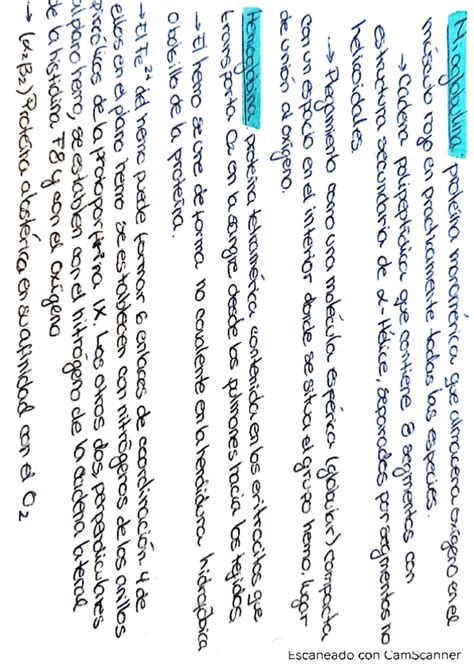 Mioglobina: proteína monomérica que almacena oxígeno en el
músculo rojo en practicamente todas las especies.
→ Cadena polipeptídica que contiene 8 segmentos con
estructura secundaria de α-Hélice, separados por segmentos no
helicoidales.
→ Plegamiento como una molécula esférica (globular) compacta
con un espacio en el interior donde se situa el grupo hemo, lugar
de unión al oxígeno.
Hemoglobina: proteína tetramérica contenida en los eritrocitos que
transporta O2 en la sangre desde los pulmones hacia los tejidos.
→ El hemo se une de forma no covalente en la hendidura hidrofóbica
o bolsillo de la proteína.
→ El Fe2+ del hemo puede formar 6 enlaces de coordinación. 4 de
ellos en el plano hemo se establecen con nitrógenos de los anillos
pirrólicos de la protoporfirina IX. Los otros dos, perpendiculares
al plano hemo, se establecen con el nitrógeno de la cadena lateral
de la histidina F8 y con el oxígeno
→ (α2B2) Proteína alostérica en su afinidad con el O2
Escaneado con CamScanner